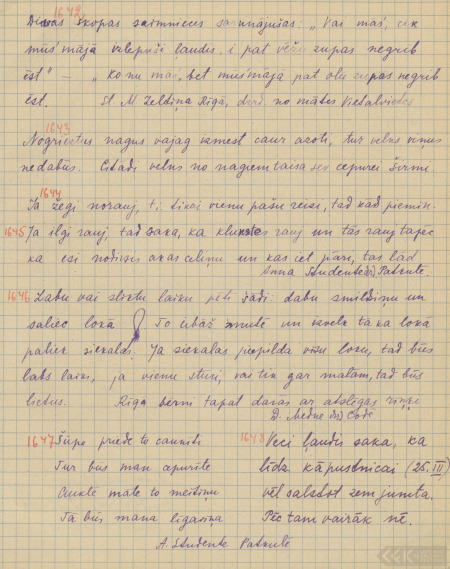 1642
Divas skopas saimnieces sarunājušās: „Vai mās', cik
mūs' mājā izlepuši ļaudis, i pat vēžu zupas negrib
ēst" – „Ko nu mās, bet mūs' mājā pat olu zupas negrib
ēst. St. M. Zeltiņa Rīgā, dzird. no mātes Vietalvietes
1643
Nogrieztus nagus vajag izmest caur azoti, tur velns viņus
nedabūs. Citādi velns no nagiem taisa sev cepurei širmi.
1644
Ja žagi norauj, t.i. tikai vienu pašu reizi, tad kāds piemin.
1645 Ja ilgi rauj, tad saka, ka klunkstes rauj un tās rauj tāpēc
ka esi nodīris acas celiņu un kas iet pāri, tas tad
Anna Studente dz. Patkule.
1646 Labu vai sliktu laiku pēti šādi: dabu smildziņu un
saliec lokā To iebāž mutē un izvelk tā ka lokā
paliek siekalas. Ja siekalas piepilda visu loku, tad būs
labs laiks, ja vienu stūri, vai tik gar malām, tad būs
lietus. Rīgā bērni tāpat daras ar atslēgas riņķi
D. Medne dz. Codē
1647 Šūpo priede to caunīti
Tur būs man cepurīte
Auklē māte to meitiņu
Tā būs mana līgaviņa
A. Studente Patkulē
1648 Veci ļaudis saka, ka
līdz kāpustnīcai (25. III)
vēl salstot zem jumta.
Pēc tam vairāk nē.